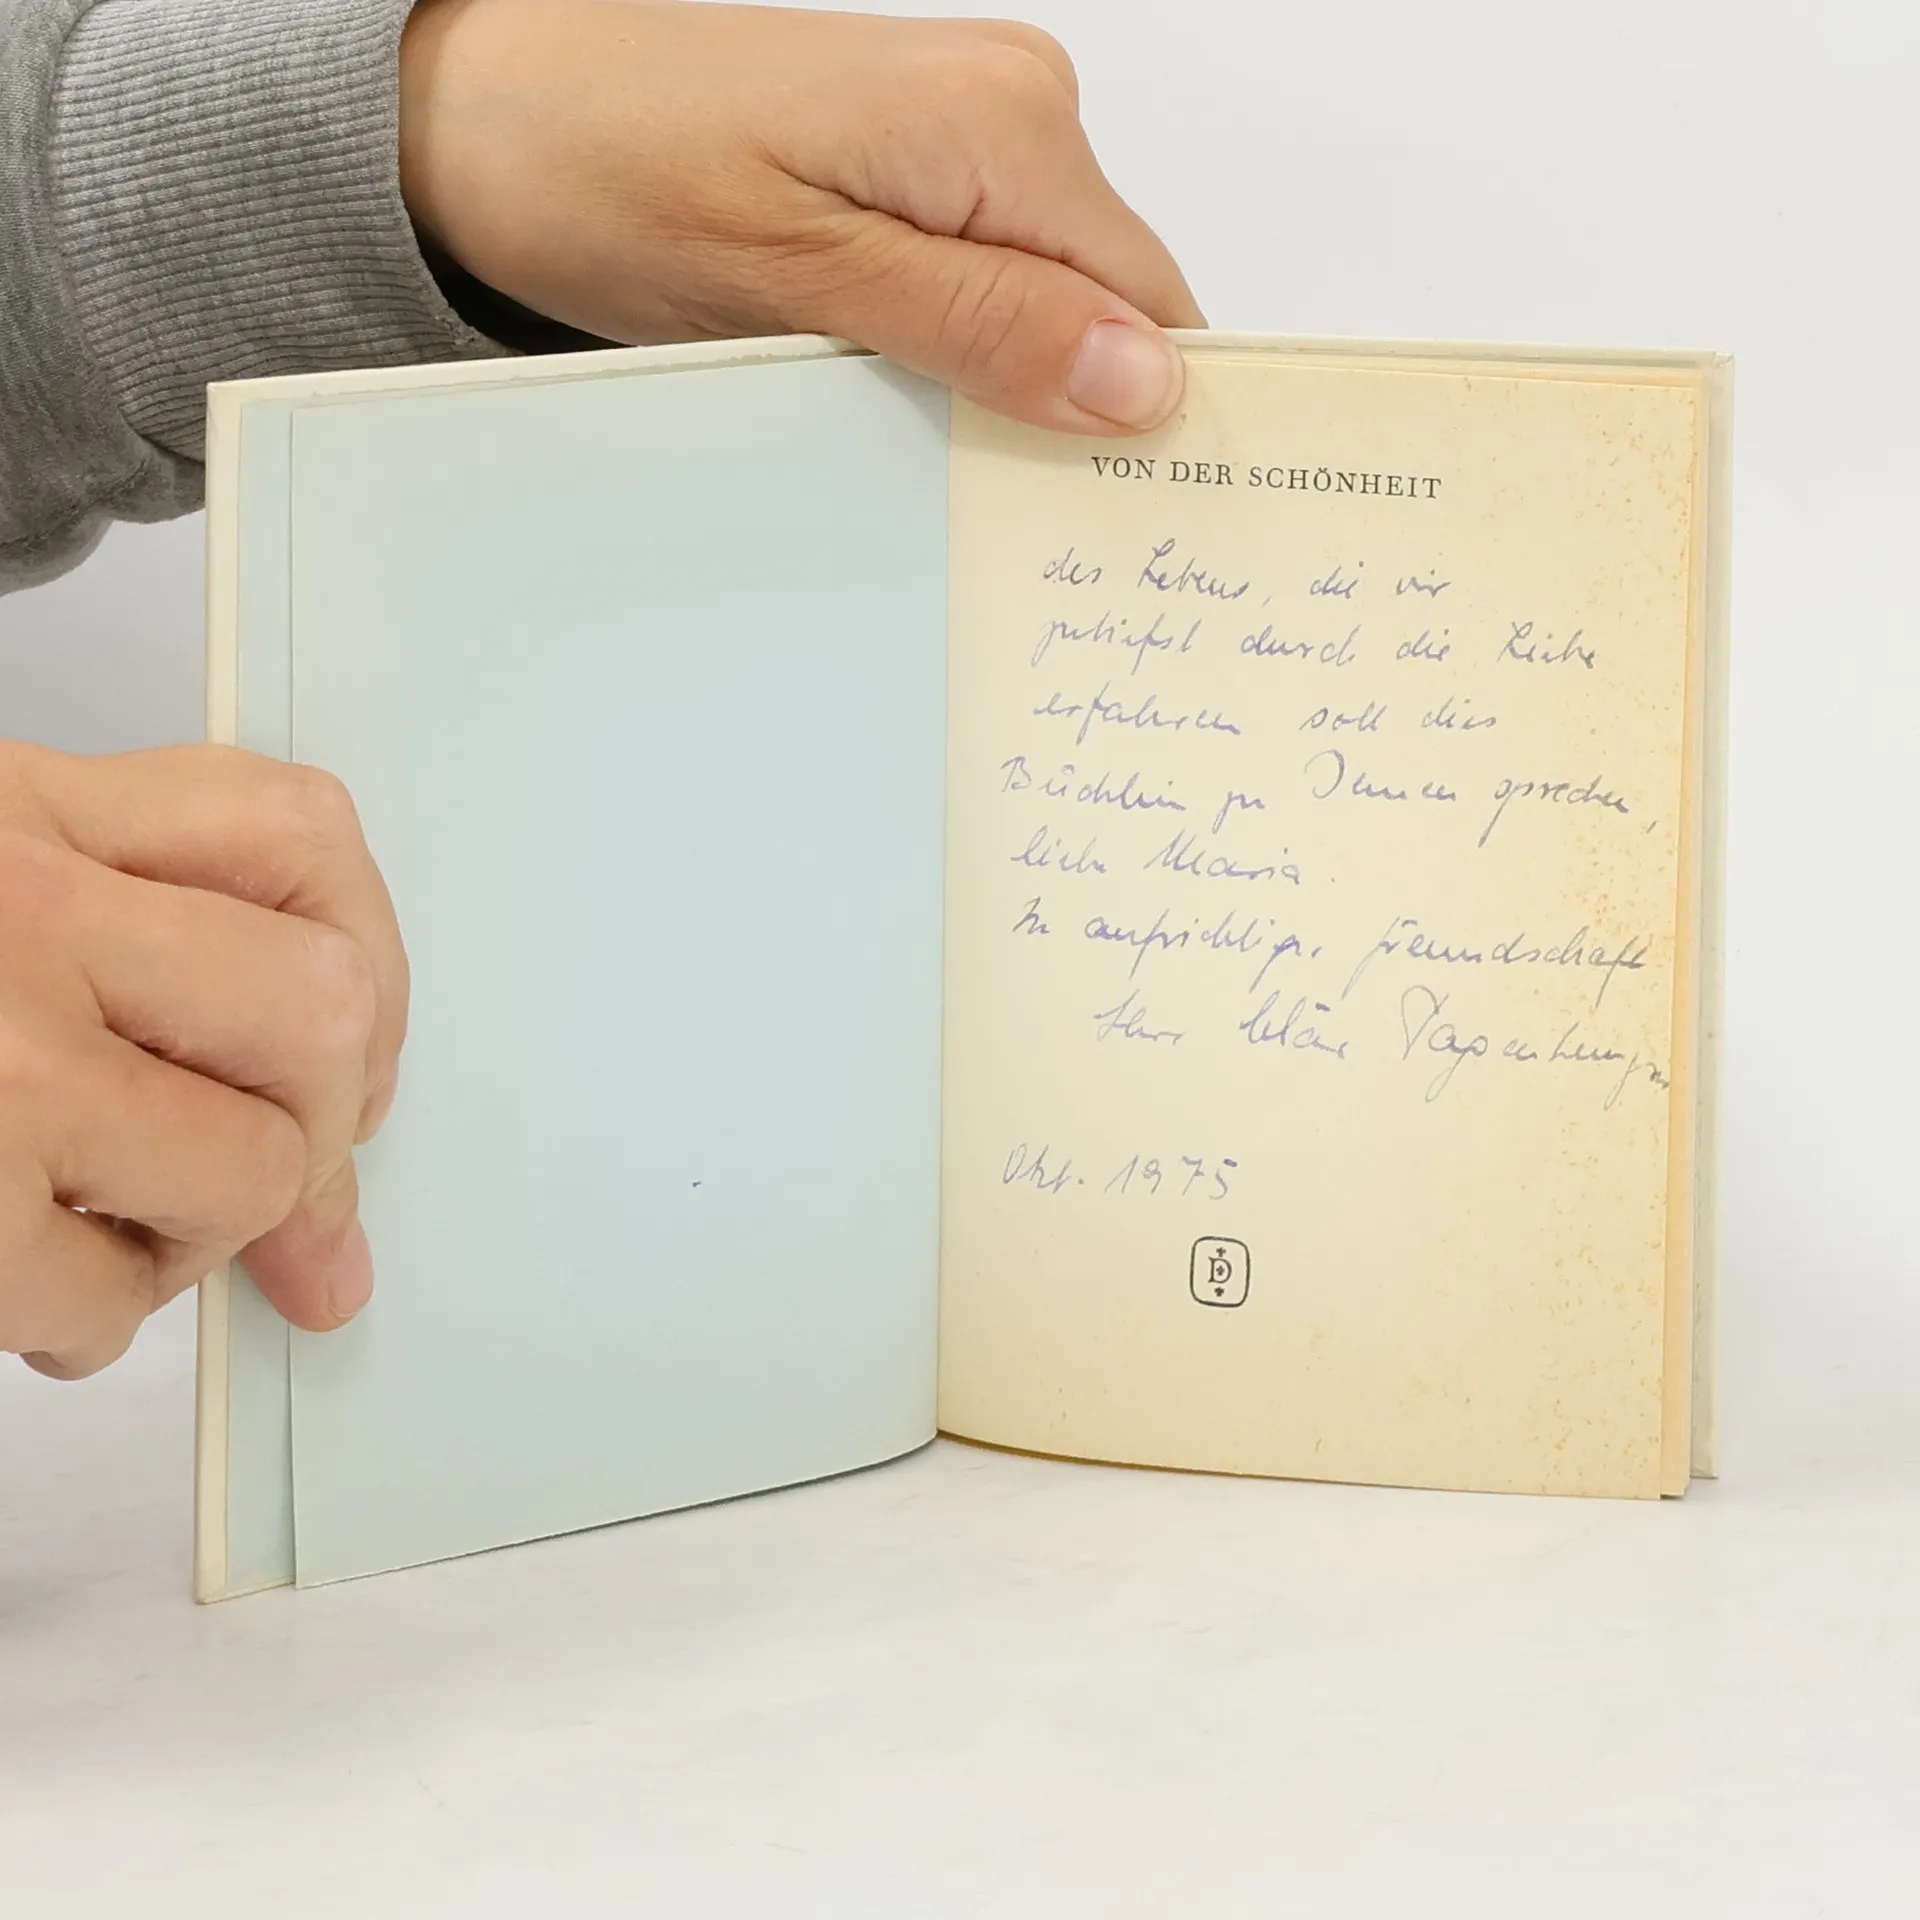 VON DER SCHÖNHEIT
des Lebens, die wir
zutiefst durch die Liebe
erfahren soll dies
Büchlein zu Ihnen sprechen,
liebe Maria.
In aufrichtiger Freundschaft
Ihre
Okt. 1975
D